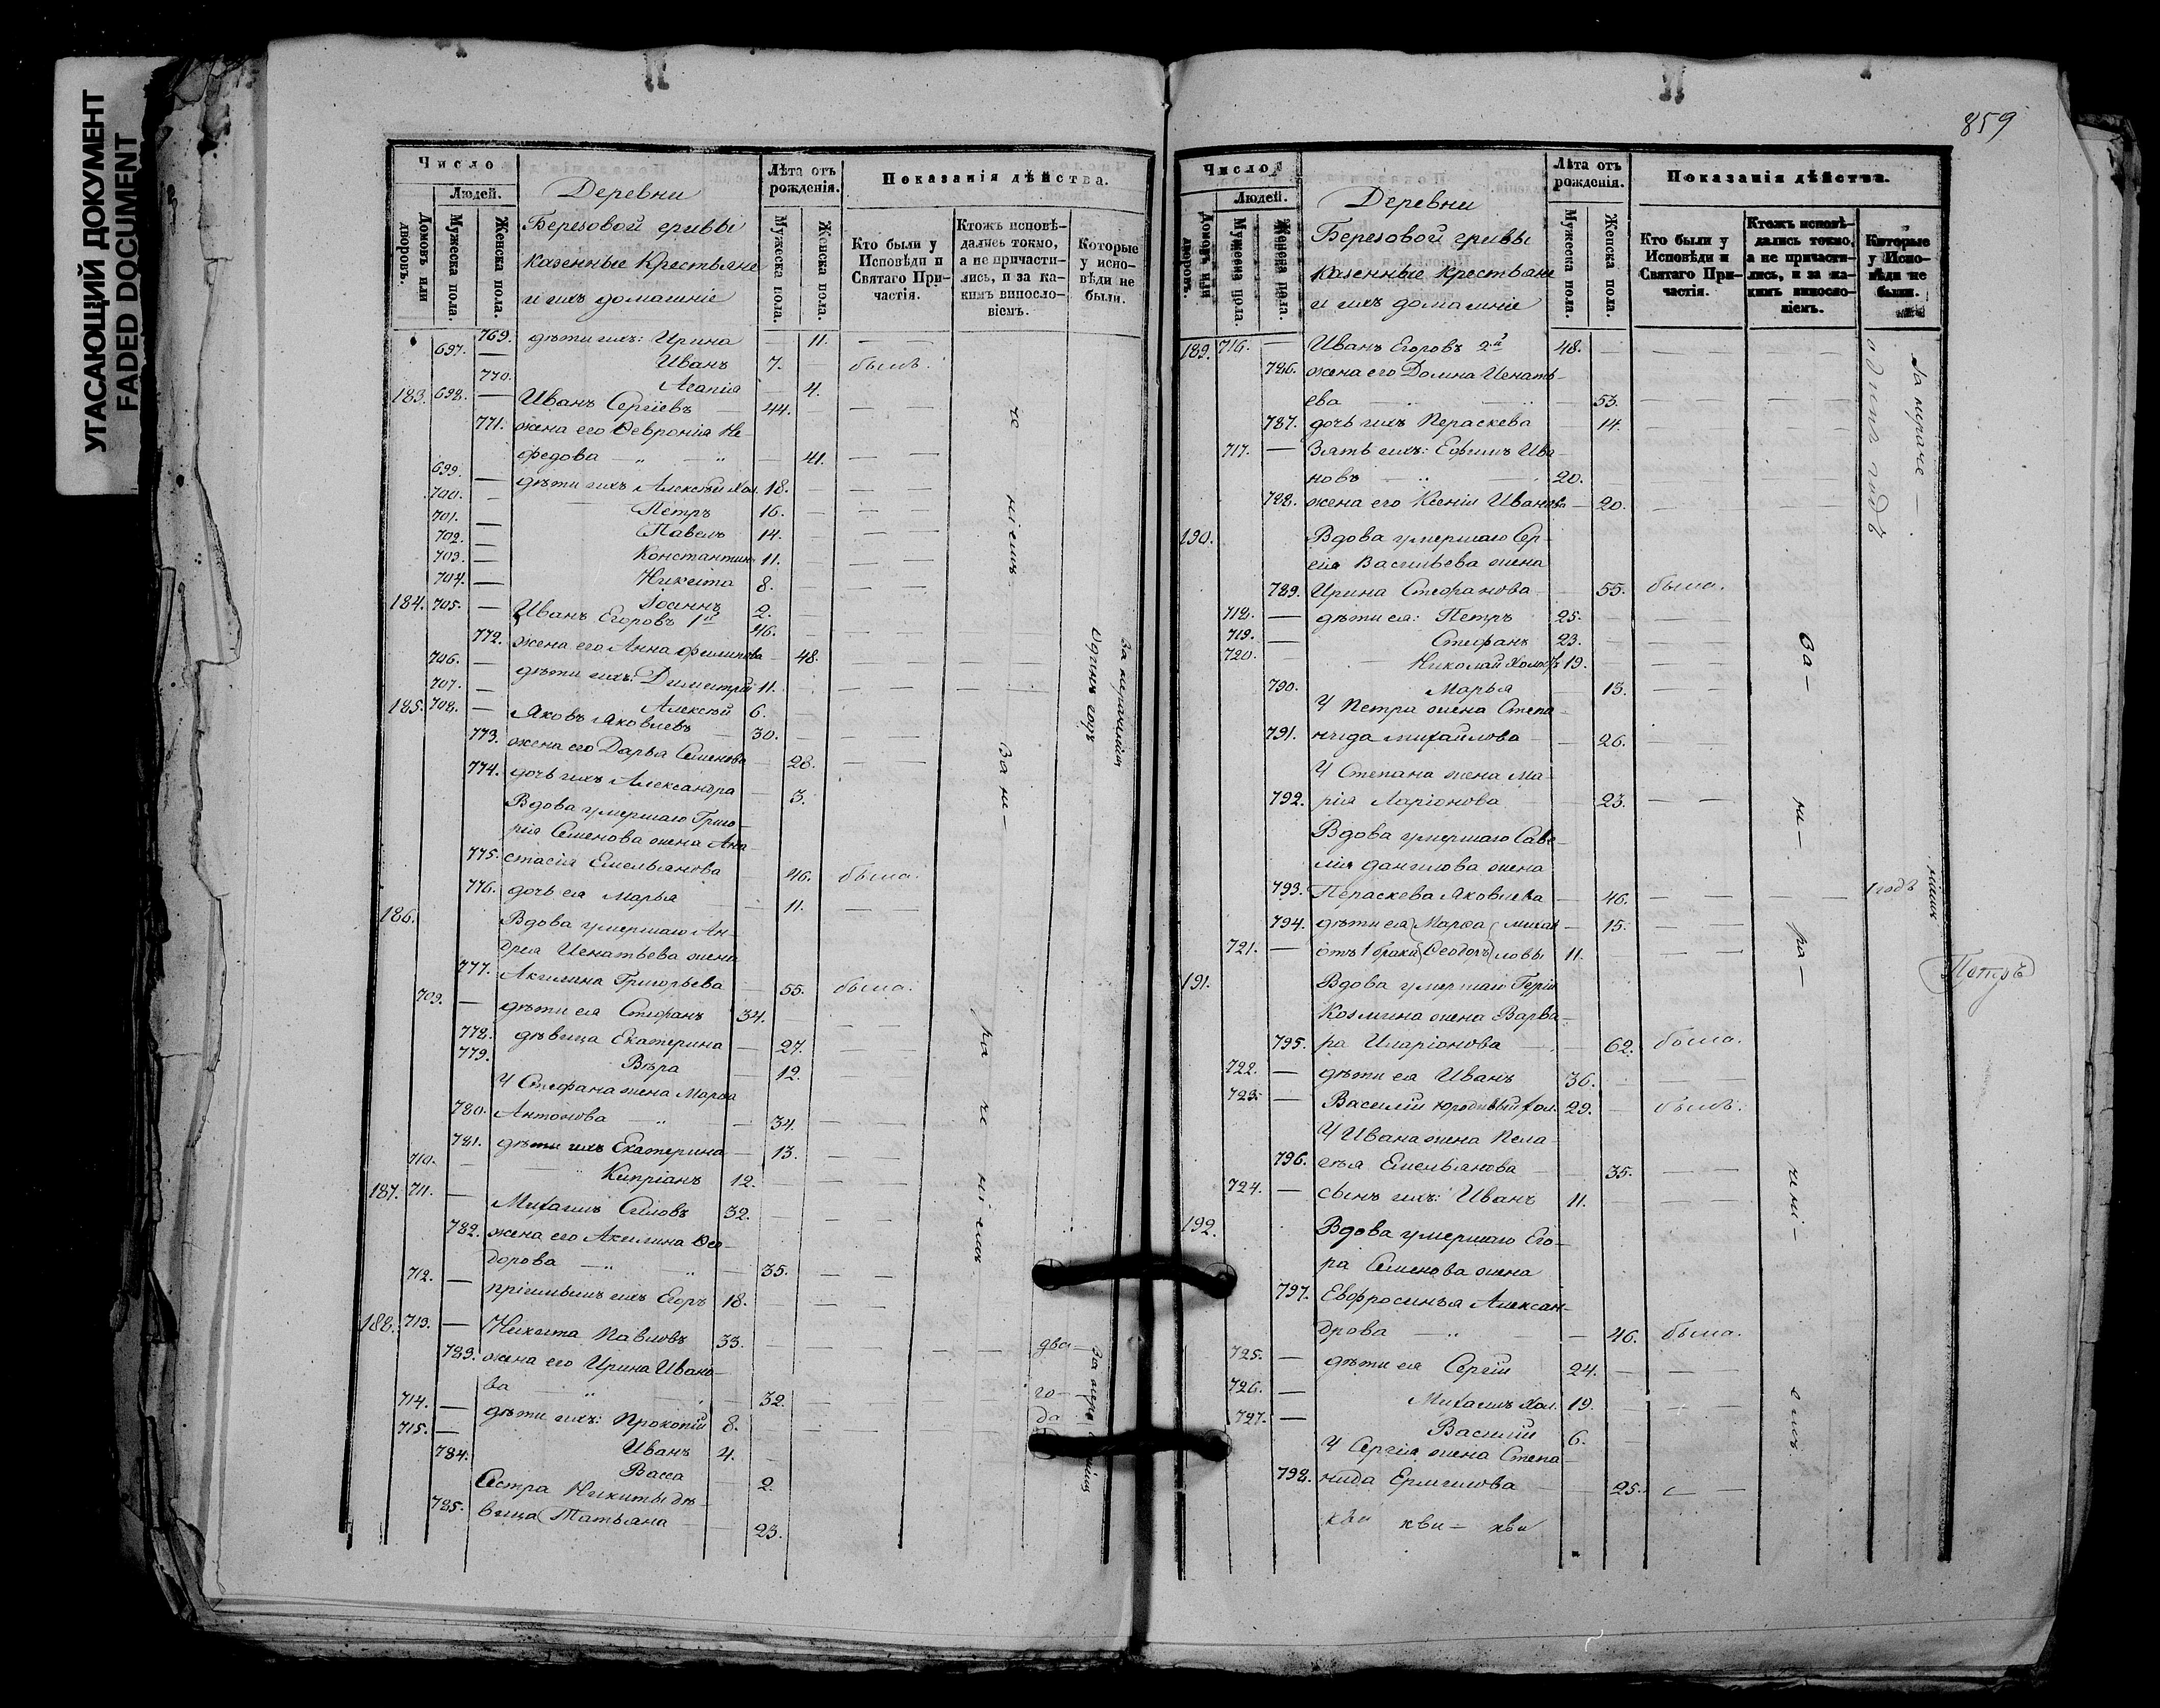 УГАСАЮЩИЙ ДОКУМЕНТ
FADED DOCUMENT
Число
Людей.
Домовъ или дворовъ.
Мужеска пола.
Женска пола.
Деревни
Березовой гривы
казенные Крестьяне
и ихъ домашніе
Лѣта отъ рожденія.
Мужеска пола.
Женска пола.
Показанія дѣйства.
Кто были у Исповѣди и Святаго При-
частія.
Ктожъ исповѣ-
дались токмо,
а не причасти-
лись, и за ка-
кимъ виносло-
віемъ.
Которые
у испо-
вѣди не
были.
769. дѣти ихъ: Ирина — 11. — —
697. — Иванъ 7. — былъ.
770. Агапія — 4.
183. 698. — Иванъ Сергіевъ — 44. — —
771. жена его Ѳевронія Не-
федова — " — " — 41. — —
699. — дѣти ихъ Алексѣй хол. 18. — —
700. — Петръ 16. — —
701. — Павелъ 14. — —
702. — Константинъ 11. — —
703. — Никита 8. — —
704. — Іоаннъ 2.
184. 705. — Иванъ Егоровъ 1й 46. — —
772. жена его Анна Филипова — 48. — —
706. — дѣти ихъ: Димитрій 11. — —
707. — Алексѣй 6.
185. 708. — Яковъ Яковлевъ — 30. — —
773. жена его Дарья Семенова — 28. — —
774. дочь ихъ Александра — 3.
Вдова умершаго Григо-
рія Семенова жена Ана-
775. стасія Емельянова — 46. была.
776. дочь ея Марья — 11. — —
186. Вдова умершаго Ан-
дрея Игнатьева жена
777. Акилина Григорьева — 55. была.
709. — дѣти ея Стефанъ 34. — —
778. дѣвица Екатерина — 27. — —
779. Вѣра — 12. — —
У Стефана жена Марѳа
780. Антонова " — 34. — —
781. дѣти ихъ Екатерина — 13. — —
710. — " Кипріанъ 12. — —
187. 711. — Михаилъ Силовъ 32. — —
782. жена его Акилина Ѳео-
дорова — " — " — 35. — —
712. — пріемышъ ихъ Егоръ 18. — —
188. 713. — Никита Павловъ 33. — —
783. жена его Ирина Ивано-
ва " — 32. — —
714. — дѣти ихъ: Прокопій 8. — —
715. — Иванъ 4. —
784. Васса — 2.
Сестра Никиты дѣ-
785. вица Татьяна — 23.
За нераченіемъ
Одинъ годъ
два
го-
да
859
Число
Людей.
Домовъ или дворовъ.
Мужеска пола.
Женска пола.
Деревни
Березовой гривы
казенные крестьяне
и ихъ домашніе
Лѣта отъ рожденія.
Мужеска пола.
Женска пола.
Показанія дѣйства.
Кто были у Исповѣди и Святаго При-
частія.
Ктожъ исповѣ-
дались токмо,
а не причасти-
лись, и за ка-
кимъ виносло-
віемъ.
Которые
у Испо-
вѣди не
были.
189. 716. — Иванъ Егоровъ 2й 48. — —
786. жена его Домна Игнать-
ева — " — 53. — —
787. дочь ихъ Параскева — 14. — —
717. — Зять ихъ: Ефимъ Ива-
новъ — " — 20. — —
788. жена его Ксенія Иванова — 20. — —
190. Вдова умершаго Сер-
гія Васильева жена
789. Ирина Стефанова — 55. была.
718. — дѣти ея: Петръ 25. — —
719. — Стефанъ 23. — —
720. — Николай холостъ 19. — —
790. Марья — 13. — —
У Петра жена Степа-
791. нида михайлова — 26. — —
У Степана жена Ма-
792. рія Ларіонова — 23. — —
Вдова умершаго Саве-
лія данилова жена
793. Параскева Яковлева — 46. — — 1 годъ
794. дѣти ея Марѳа михаи — 15. — —
721. — отъ 1 брака Ѳеодоръ ловы 11. — —
191. Вдова умершаго Гурія
Козмина жена Варва-
795. ра Иларіонова — 62. была.
722. — дѣти ея Иванъ 36. — —
723. — Василій юродивый хол. 29. — былъ.
У Ивана жена Пела-
796. гія Емельянова — 35. — —
724. — сынъ ихъ: Иванъ 11. — —
192. Вдова умершаго Его-
ра Семенова жена
797. Евфросинья Алексан-
дрова — " — 46. была.
725. — дѣти ея Сергій 24. — —
726. — Михаилъ хол. 19. — —
727. — Василій 6. —
У Сергія жена Степа-
798. нида Ермилова — 25. — —
За нераче-
ніемъ
одинъ годъ
За-
не-
ра-
чені-
емъ